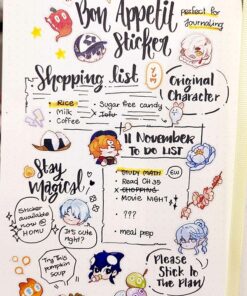 Bon Appetit
Sticker
perfect for
Journaling
Shopping list
YUM
• Rice
• Milk
• Coffee
• Sugar free candy
× Tofu
Original
Character
11 November
TO DO LIST
• STUDY MATH
• Read CH 35
× SHOPPING
• Movie NIGHT
• ???
• meal prep
EW
Stay
Magical
Sticker
available
now @
HOMU
It's cute
right?
Try This
pumpkin
soup
Please
Stick To
The Plan